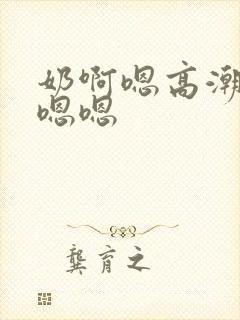 奶啊嗯高潮
嗯嗯
龚育之